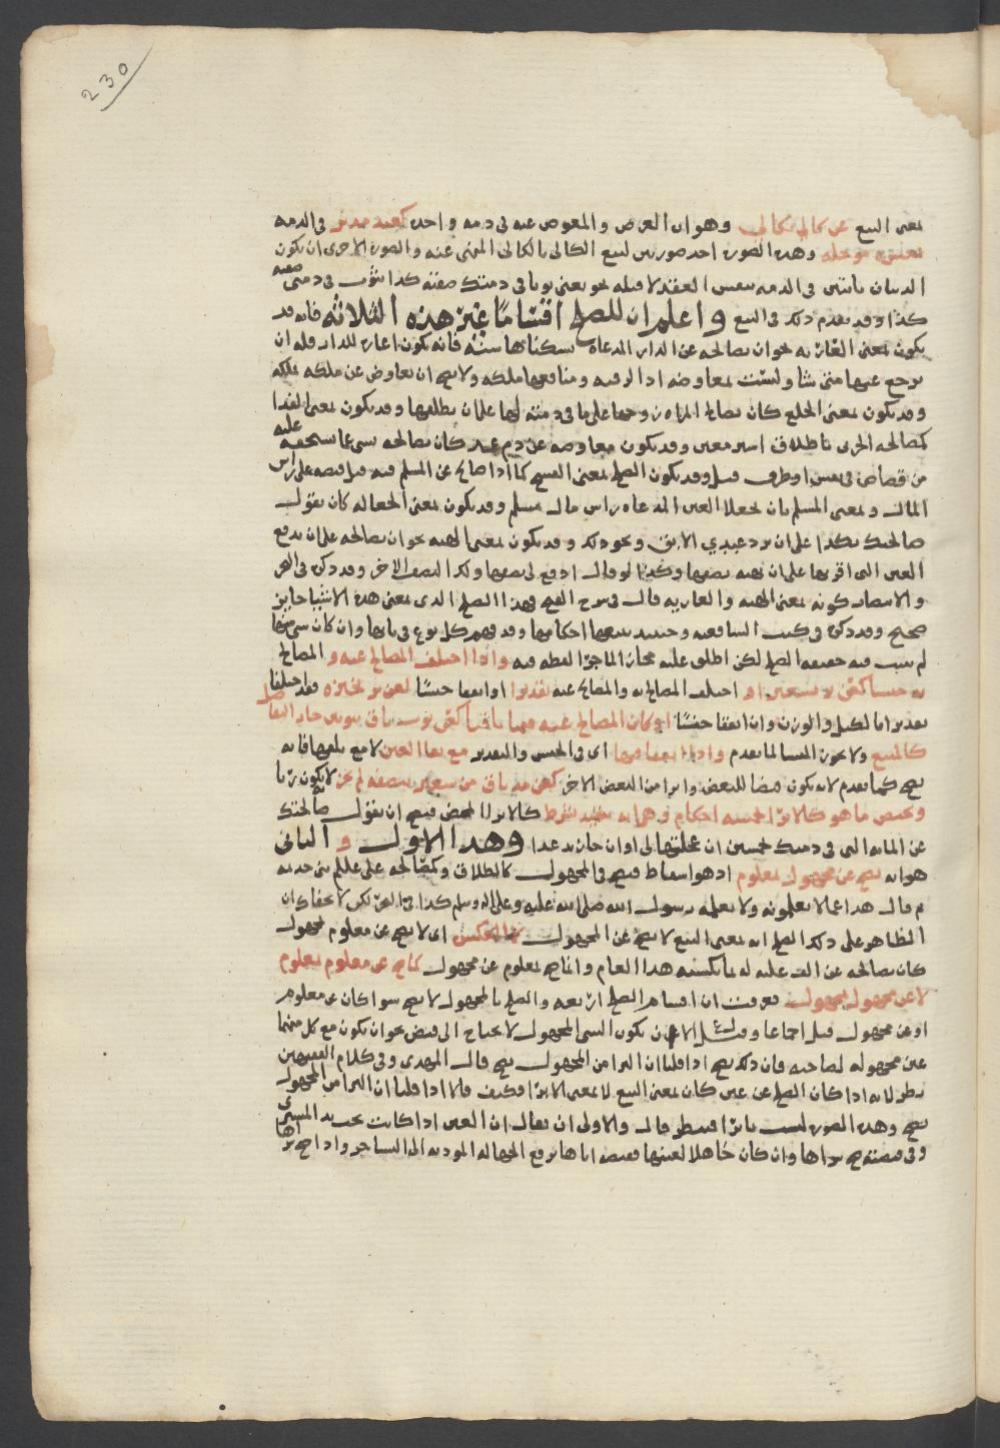 230
معنى البيع عن كالي بكالي وهو ان العوض والمعوض عنه في ذمه واحده كعبد مدبر في الذمه
مؤجله وهذه الصوره احد صورتي لبيع الكالي بالكالي المنهي عنه والصوره الاخرى ان يكون
الدينان ثابتين في الذمه بنفس العقد لا قبله نحو بعني ثوبا في ذمتك صفته كذا بثوب في ذمتي صفته
كذا وقد تقدم ذلك في البيع واعلم ان للصلح اقسامًا غير هذه الثلاثه فانه قد
يكون بمعنى العاريه نحو ان يصالحه عن الدار المدعاه بسكناها سنه فانه يكون اعاره للدار فله ان
يرجع عنها متى شا وليست بمعاوضه اذ الرقبه ومنافعها ملكه ولا يصح ان يعاوض عن ملكه بملكه
وقد يكون بمعنى الخلع كان تصالح المراه زوجها على ما في ذمته لها على ان يطلقها وقد يكون بمعنى الفدا
كمصالحه الحربي باطلاق اسير معين وقد يكون معاوضه عن دم عمد كان يصالحه بشي عما يستحقه عليه
من قصاص في نفس او طرف قيل وقد يكون الصلح بمعنى الفسخ كما اذا صالح عن المسلم فيه قبل قبضه على راس
المال وبمعنى السلم بان يجعلا العين المدعاه راس مال سلم وقد يكون بمعنى الجعاله كان يقول
صالحتك بكذا على ان ترد عبدي الابق ونحو ذلك وقد يكون بمعنى الهبه نحو ان يصالحه على ان يدفع
العين التي اقر بها على ان يهبه نصفها وكذا لو قال ادفع لي نصفها ولك النصف الاخر وقد ذكر في البحر
والانتصار كونه بمعنى الهبه والعاريه قال في شرح الفتح فهذا الصلح الذي بمعنى هذه الاشيا جايز
صحيح وقد ذكره في كتب الشافعيه وحينئذ يتبعها احكامها وقد فهم كل نوع في بابها وان كان شي منها
لم يثبت فيه حقيقه الصلح لكن اطلق عليه مجازا لما جرى لفظه فيه واذا اختلف المصالح عنه و المصالح
به جنسا او اختلف المصالح به والمصالح عنه تقديرا او اتفقا جنسًا فقد اختلفا
تقديرا بالكيل والوزن وان اتفقا جنسًا او كان المصالح عنه قيميا باقيا كثوب باق بثوبين جاز التفاضل
كالبيع ولا يجوز النسا لما تقدم واذا اتفقا فيهما اي في الجنس والتقدير مع بقا العين لا مع تلفها فانه
يصح كما تقدم لانه يكون قبضا للبعض وابرا من البعض الاخر لم يجز لا يكون ربا
ويختص ما هو كالابرا بخمسه احكام وهي انه يتقيد بشرط كالابرا المحض فيصح ان يقول صالحتك
عن المايه التي في ذمتك بخمسين ان عجلتها لي او ان جا زيد غدا وهذا الاول و الثاني
هو انه يصح عن مجهول بمعلوم اذ هو اسقاط فيصح في المجهول كالطلاق وكمصالحه علي عليلم بني جذيمه
ثم قال هذا عما لا تعلمونه ولا يعلمه رسول الله صلى الله عليه وعلى اله وسلم كذا في البحر لكن لا يخفاك ان
الظاهر على ذلك الصلح انه بمعنى البيع لا يصح عن المجهول لا العكس اي لا يصح عن معلوم بمجهول
كان يصالحه عن الف عليه له بما يكسبه هذا العام وانما يصح بمعلوم عن مجهول كما يصح عن معلوم بمعلوم
لا عن مجهول بمجهول فعرفت ان اقسام الصلح اربعه والصلح بالمجهول لا يصح سوا كان عن معلوم
او عن مجهول قيل اجماعا وقيل الا ان يكون الشي المجهول لا يحتاج الى قبض نحو ان يكون مع كل منهما
عين مجهوله لصاحبه فان ذلك يصح اذا قلنا ان البرا من المجهول يصح قال المهدي وفي كلام الفقيهين
نظر لانه اذا كان الصلح عن عين كان بمعنى البيع لا بمعنى الابرا فكيف قالا اذا قلنا ان البرا من المجهول
يصح وهذه الصوره ليست بابرا فينظر قال والاولى ان يقال ان العين اذا كانت بيد المشتري
وفي قبضته صح شراها وان كان جاهلا لعينها فقبضه اياها يرفع الجهاله الموديه الى التشاجر واذا صح شراها